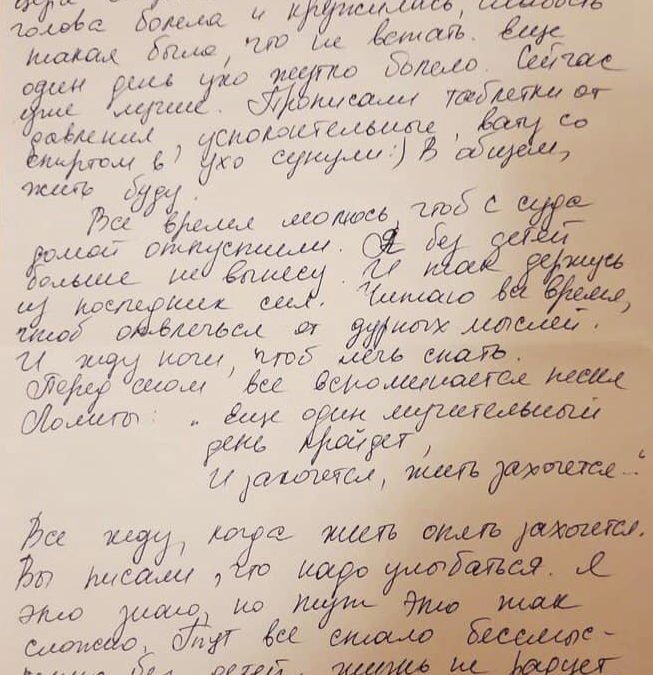 голова болела и кружилась, слабость
такая была, что не встать. Еще
один день ухо жутко болело. Сейчас
уже лучше. Прописали таблетки от
давления, успокоительные, вату со
спиртом в ухо сунули :) В общем,
жить буду.
Все время молюсь, чтоб с суда
домой отпустили. Я без детей
больше не вынесу. И так держусь
из последних сил. Читаю все время,
чтоб отвлечься от дурных мыслей.
И жду ночи, чтоб лечь спать.
Перед сном все вспоминается песня
Лолиты: „Еще один мучительный
день пройдет,
И захочется, жить захочется..."
Все жду, когда жить опять захочется.
Вы писали, что надо улыбаться. Я
это знаю, но тут это так
сложно. Тут все стало бессмыс-
без детей, жизнь не радует